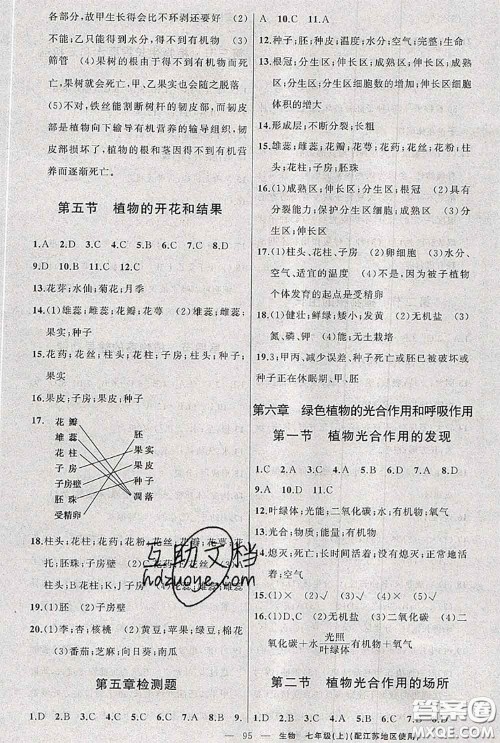 些多, 故甲生长得比不环剥还要好 (2)
茎;乙只能得到水分, 得不到有机物 (3)
筛管 (4)果树的根由于得不到有机物而
逐渐死亡, 甲、乙果实也会随之脱落
(5)不对, 铁丝能割断树杆的韧皮部, 而韧
皮部是植物向下输导有机营养的输导组织, 韧
皮部损坏了, 植物的根和茎因得不到有机营养
而逐渐死亡。
第五节 植物的开花和结果
1.A 2.D 3.C 4.C 5.B 6.C 7.C 8.D
9.D 10.D 11.B 12.C
13.花芽;水仙;菊花;月季
14.(1)雄蕊;雌蕊;花瓣;花萼 (2)雄蕊;雌蕊;
果实;种子
15.花药;花丝;柱头;花柱;子房;雄蕊;雌蕊;
果实
16.果皮;子房;果皮;种子
17.
花瓣
雄蕊
花萼
子房
子房壁
胚珠
受精卵
胚
果实
果皮
种子
凋落
18.柱头;花柱;花药;花粉;花丝;花瓣;花萼;花
托;胚珠;子房;B;D、E;B、D、E;
柱头;B;花柱;K、J;子房;C
19.(1)胚 (2)子房壁
20.(1)李;杏;核桃 (2)黄豆;苹果;绿豆;棉花
(3)番茄;芝麻;向日葵;南瓜
第五章检测题
1.D 2.D 3.C 4.C 5.D 6.B 7.D 8.B
A 10.C 11.A
12.种子;胚;种皮;温度;水分;空气;完整;生命
13.根冠;分生区;伸长区;成熟区;成熟区;伸长
区;分生区;分生区细胞数的增多;伸长区细胞
体积的增大
14.形成层;不断分裂;长粗
15.柱头;花柱;子房;花瓣;花药;花丝;花萼
16.(1)成熟区;伸长区;分生区;根冠 (2)具有
分裂能力,保护作用 (3)成熟区 (4)分生区、
伸长区
17.(1)柱头、花药 (2)卵细胞 (3)水分、
空气、适宜的温度 (4)不赞成,因为被子植物
个体发育的起点是受精卵
18.(1)健壮;鲜绿;矮小;发黄 (2)无机盐 (3)
氮、磷、钾 (4)能;无土栽培
19.(3)甲;丙、减少实验误差、种子死亡或胚已被破坏或
种子正在休眠期、甲、胚
第六章 绿色植物的光合作用和呼吸作用
第一节 植物光合作用的发现
1.C 2.A 3.C 4.D 5.B 6.C 7.D 8.C
9.A 10.D 11.D
12.叶绿体;光能;二氧化碳;水;有机物;氧气
13.光合;物质;能量;有机物
14.熄灭;死亡;长时间活着;没有熄灭;正常地活
着;
15.(1)× (2)√ (3)√ (4)×
16.(1)水、无机盐 (2)光 (3)二氧化碳 (4)水+
二氧化碳 光照 叶绿体 有机物+氧气
第二节 植物光合作用的场所
1.D 2.A 3.C 4.B 5.C 6.D 7.B 8.D
— 95 — 生物 七年级(上)(配江苏地区使用)
互助文档
hdzuoye.com
答案圈
MXQE.COM